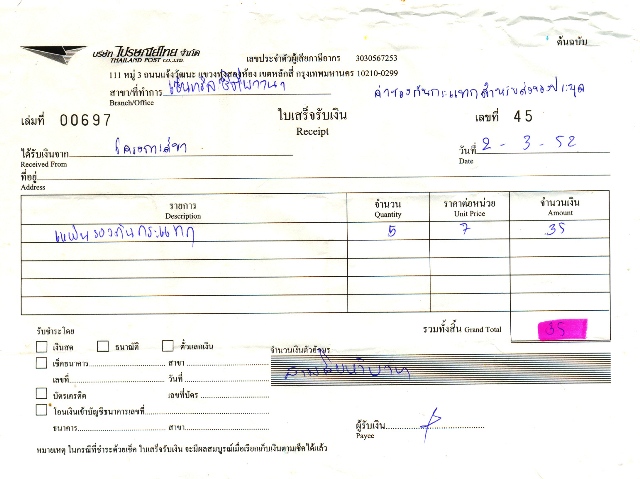 ต้นฉบับ
บริษัท ไปรษณีย์ไทย จำกัด
THAILAND POST CO.,LTD.
เลขประจำตัวผู้เสียภาษีอากร 3030567253
111 หมู่ 3 ถนนแจ้งวัฒนะ แขวงทุ่งสองห้อง เขตหลักสี่ กรุงเทพมหานคร 10210-0299
สาขาที่ทำการ
Branch/Office
ค่ารองกันกระแทกสำหรับส่งของประมูล
เล่มที่ 00697
ใบเสร็จรับเงิน
Receipt
เลขที่ 45
ได้รับเงินจาก
Received From
วันที่ 2 - 3 - 52
Date
ที่อยู่
Address
รายการ จำนวน ราคาต่อหน่วย จำนวนเงิน
Description Quantity Unit Price Amount
แผ่นรองกันกระแทก 5 7 35
รวมทั้งสิ้น Grand Total 35
รับชำระโดย
เงินสด ธนาณัติ ตั๋วแลกเงิน
จำนวนเงินตัวอักษร
เช็คธนาคาร สาขา
สามสิบห้าบาท
เลขที่ วันที่
บัตรเครดิต เลขที่บัตร
โอนเงินเข้าบัญชีธนาคารเลขที่
ธนาคาร สาขา
ผู้รับเงิน
Payee
หมายเหตุ ในกรณีที่ชำระด้วยเช็ค ใบเสร็จรับเงิน จะมีผลสมบูรณ์เมื่อเรียกเก็บเงินตามเช็คได้แล้ว